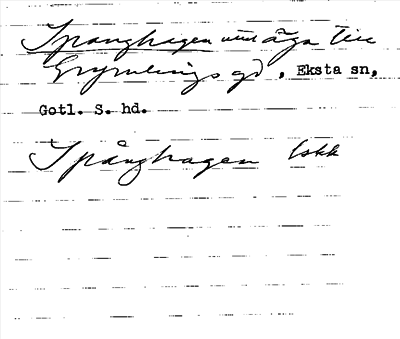 Spånghagen utni äga till
Grymlings gd, Eksta sn,
Gotl. S. hd.
Spånghagen lskk